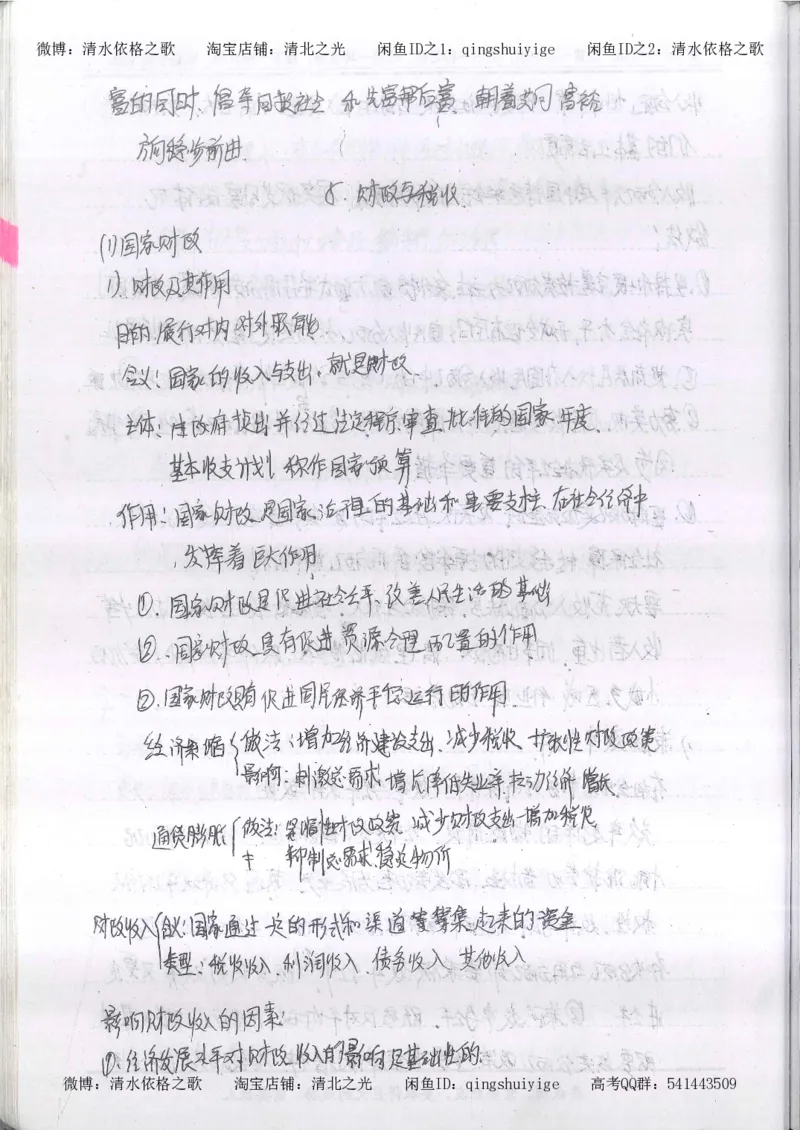 微博：清水依格之歌 淘宝店铺：清北之光 闲鱼ID之1：qingshuiyige 闲鱼ID之2：清水依格之歌
富的同时，倡导回报社会和先富帮后富，朝着共同富裕
方向稳步前进.
5. 财政与税收.
(1)国家财政
1). 财政及其作用
目的：履行对内对外职能
含义：国家的收入与支出，就是财政.
主体：由政府提出并经过法定程序审查批准的国家年度
基本收支计划，称作国家预算
作用：国家财政是国家治理的基础和重要支柱，在社会经济中
，发挥着巨大作用
①. 国家财政是促进社会公平、改善人民生活的基础
②. 国家财政具有促进资源合理配置的作用
②. 国家财政具有促进国民经济平稳运行的作用.
经济萎缩 做法：增加经济建设支出、减少税收 扩张性财政政策
影响：刺激总需求增长降低失业率拉动经济增长
通货膨胀 做法：紧缩性财政政策 减少财政支出 增加税收
抑制总需求稳定物价
财政收入 含义：国家通过一定的形式和渠道筹集起来的资金
类型：税收收入、利润收入、债务收入、其他收入
影响财政收入的因素：
①. 经济发展水平对财政收入的影响是基础性的.
微博：清水依格之歌 淘宝店铺：清北之光 闲鱼ID：qingshuiyige 高考QQ群：541443509